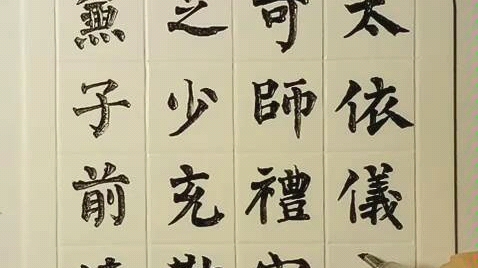 太依儀
可師禮
之少充
無子前